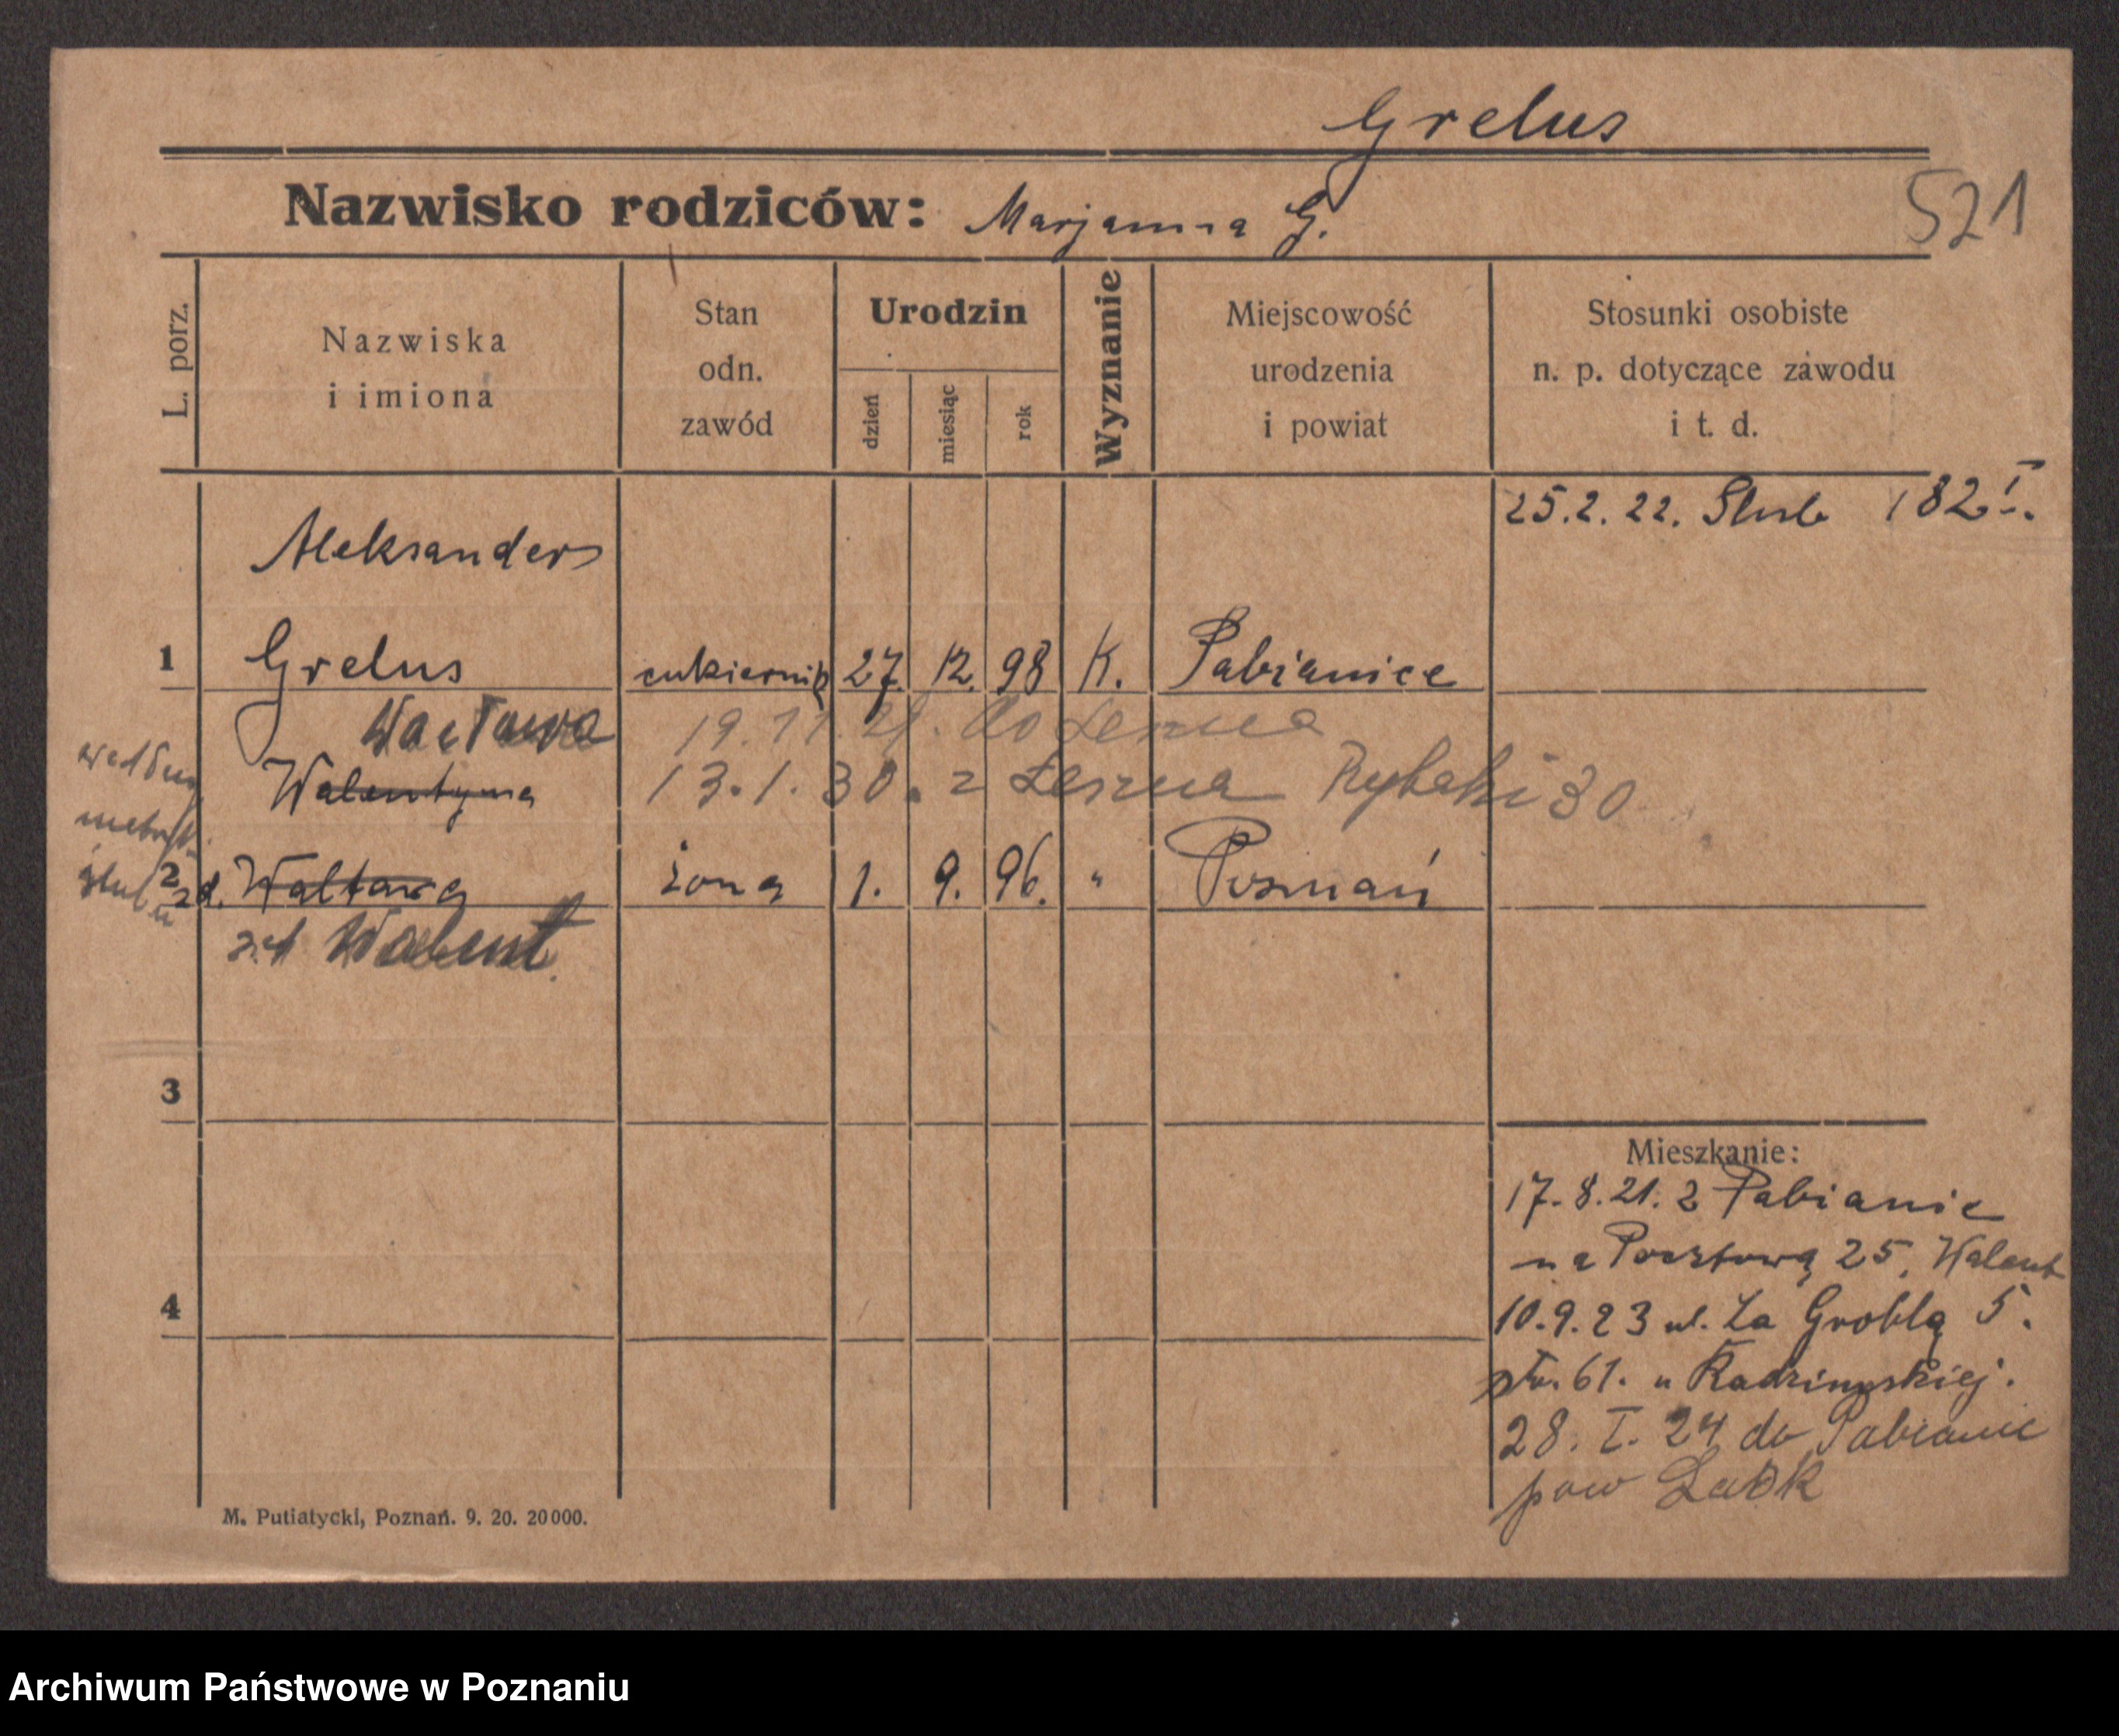 Grelus
Nazwisko rodziców: Marjanna G.
521
L. porz.
Nazwiska
i imiona
Stan
odn.
zawód
Urodzin
dzień
miesiąc
rok
Wyznanie
Miejscowość
urodzenia
i powiat
Stosunki osobiste
n. p. dotyczące zawodu
i t. d.
25.2.22. Ślub 182 I.
Aleksander
1 Grelus cukiernik 27. 12. 98 K. Pabianice
Wacława 19.11.29. do Leszna
Walentyna 13.1.30. z Leszna Rybaki 30
według
metryki
ślubu
2 zd. Waltawa żona 1. 9. 96. " Poznań
zd Walent.
3
Mieszkanie:
17.8.21. z Pabianic
na Pocztową 25, Walent
4
10.9.23 ul. Za Groblą 5.
ptr. 61. u
28. I. 24 do Pabianic
pow Łask
M. Putiatycki, Poznań. 9. 20. 20000.
Archiwum Państwowe w Poznaniu